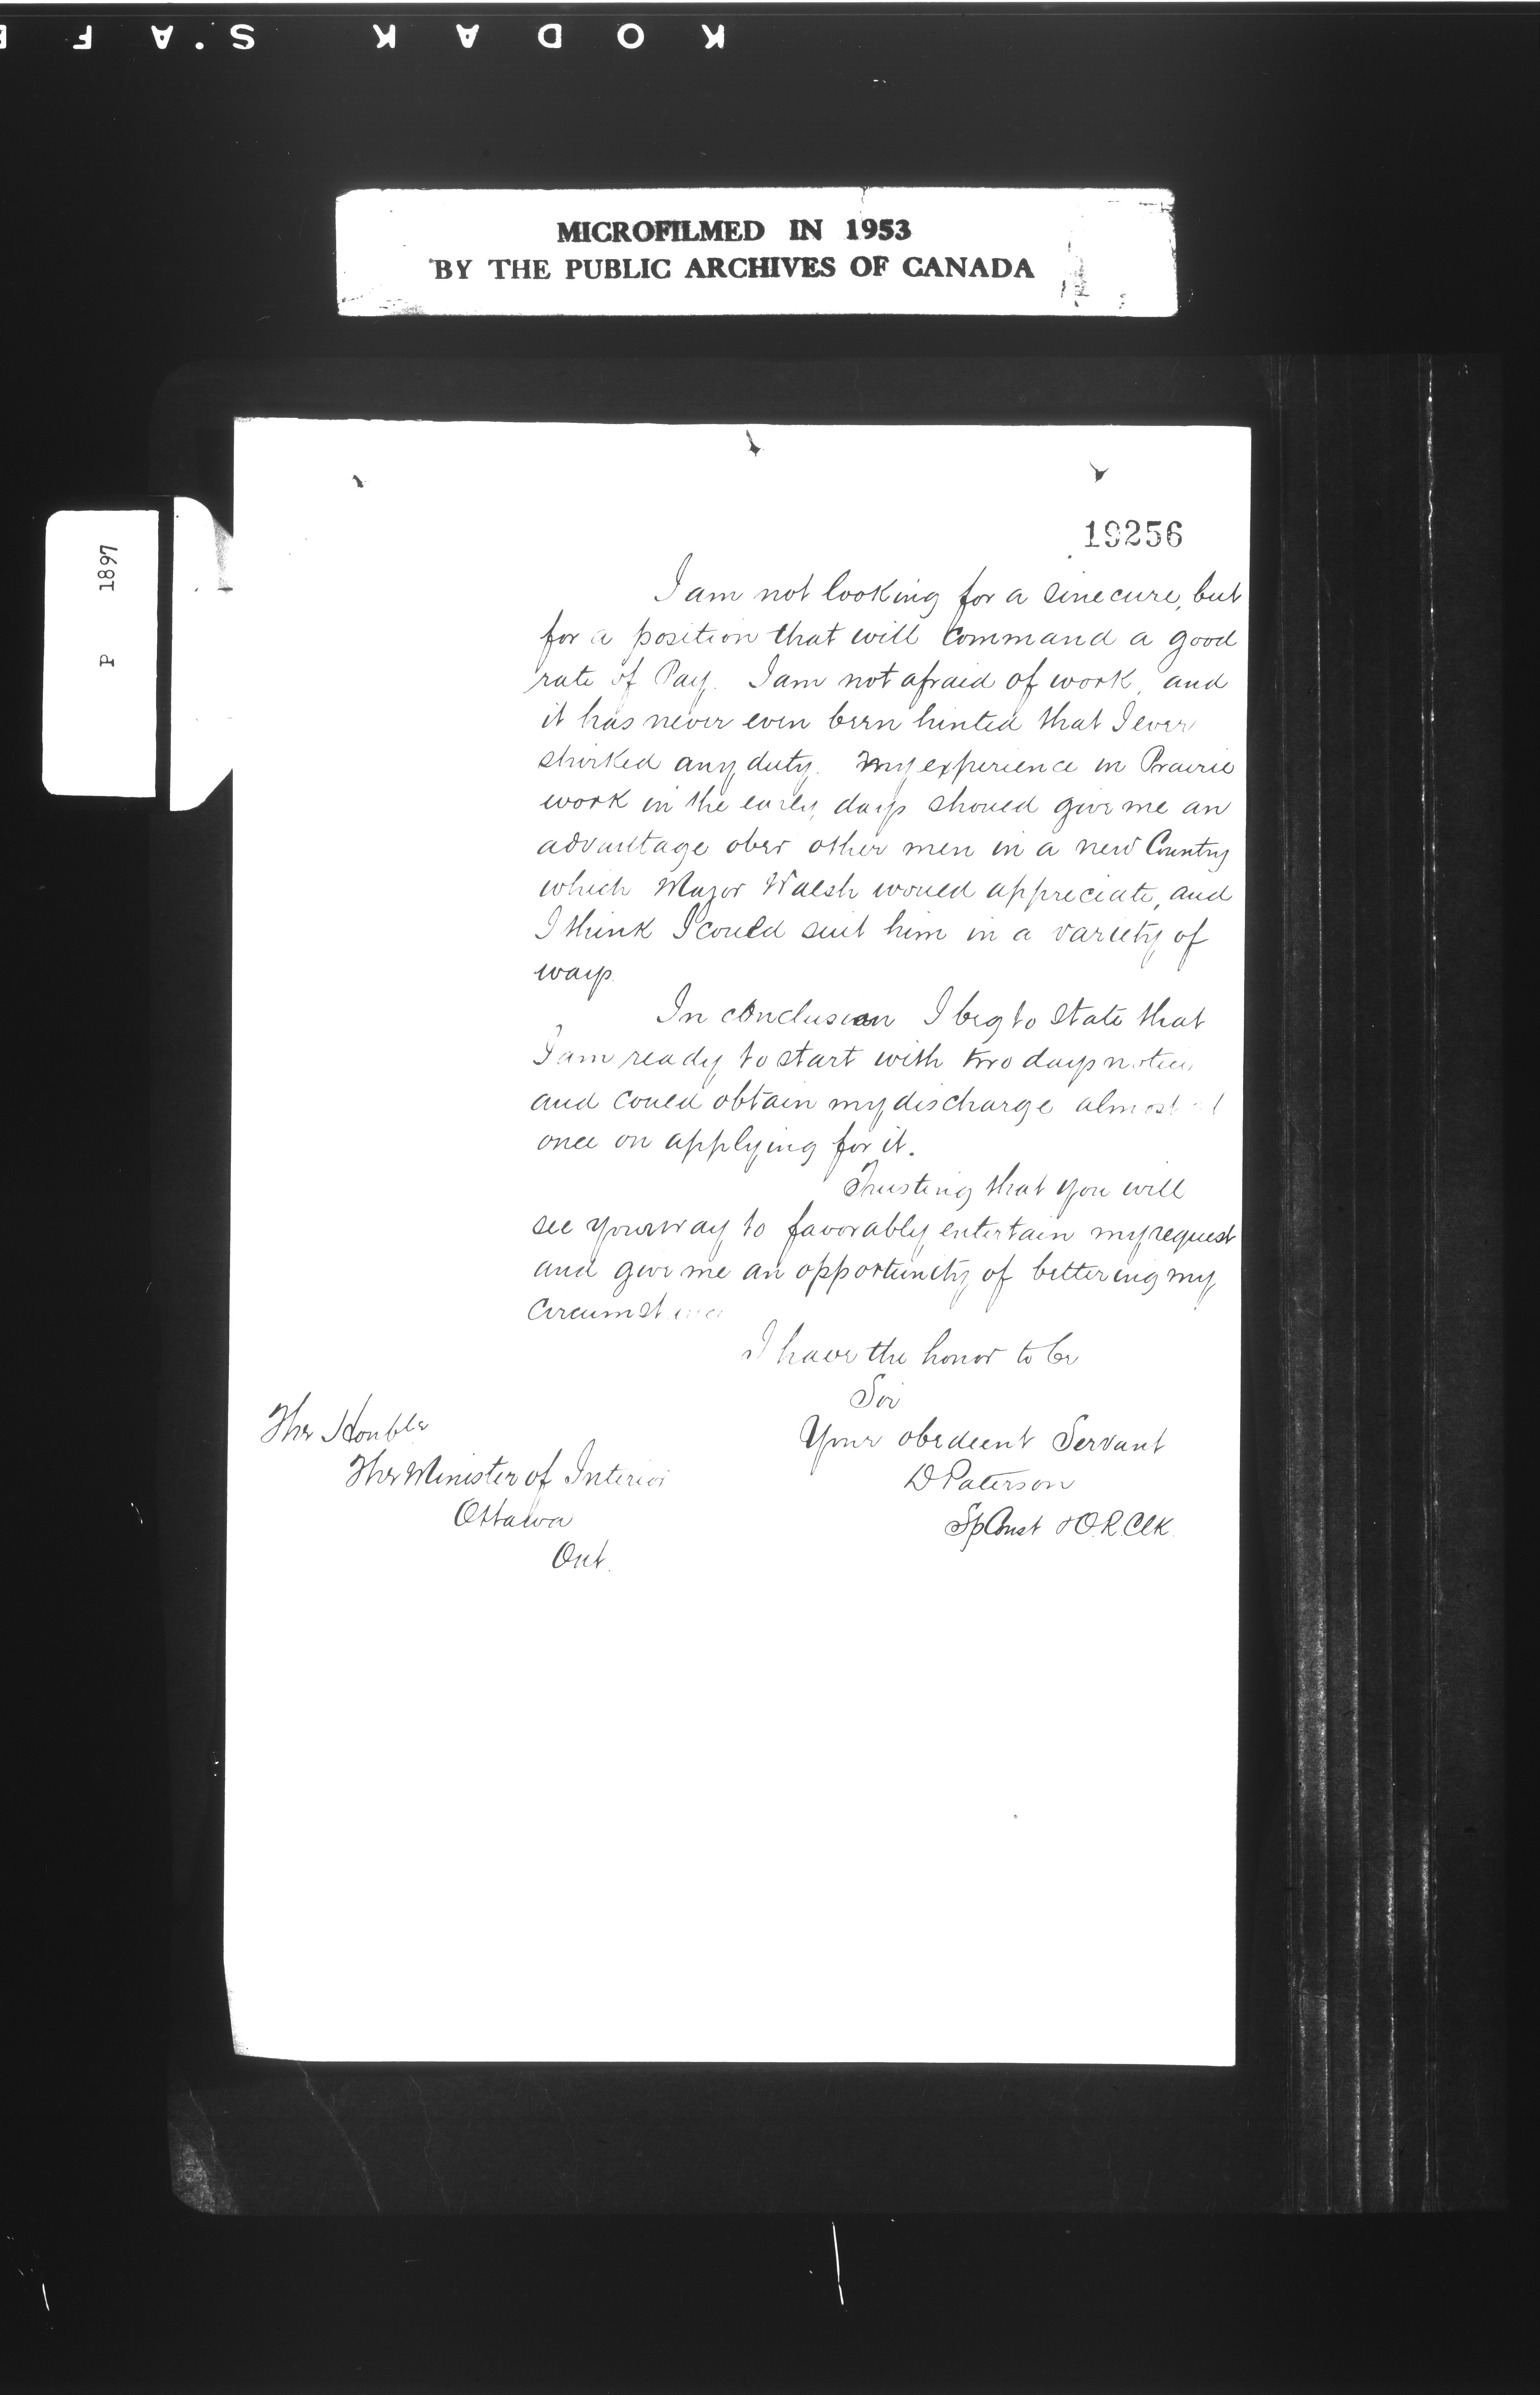 KODAK S.AFE
MICROFILMED IN 1953
BY THE PUBLIC ARCHIVES OF CANADA
P 1897
19256
I am not looking for a sinecure, but
for a position that will command a good
rate of Pay. I am not afraid of work, and
it has never even been hinted that I ever
shirked any duty. My experience in Prairie
work in the early days should give me an
advantage over other men in a new Country
which Major Walsh would appreciate, and
I think I could suit him in a variety of
ways.
In conclusion I beg to state that
I am ready to start with two days notice
and could obtain my discharge almost at
once on applying for it.
Trusting that you will
see your way to favorably entertain my request
and give me an opportunity of bettering my
Circumstances
I have the honor to be
Sir
Your obedient Servant
D Paterson
Sp Const & O.R. Clk.
The Honble
The Minister of Interior
Ottawa
Ont.